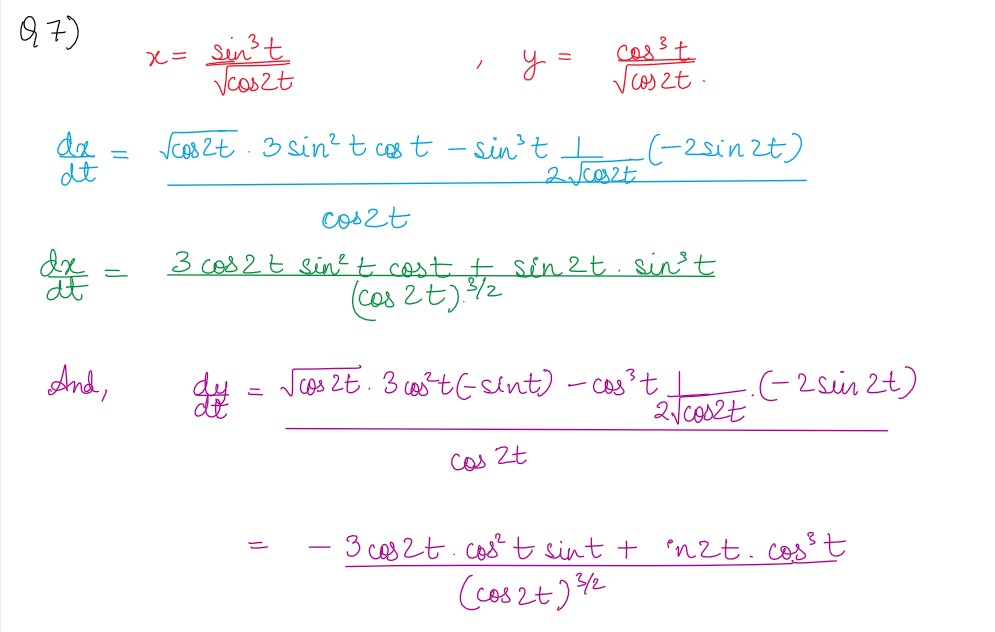 Q 7)
x = sin³t / √cos2t , y = cos³t / √cos2t.
dx/dt = (√cos2t . 3 sin²t cos t − sin³t 1/(2√cos2t) (−2sin2t)) / cos2t
dx/dt = (3 cos2t sin²t cost + sin2t . sin³t) / (cos 2t).³/²
And, dy/dt = (√cos2t . 3cos²t(−sint) − cos³t 1/(2√cos2t) .(−2sin2t)) / cos 2t
= (−3cos2t . cos²t sint + n2t . cos³t) / (cos2t)³/²